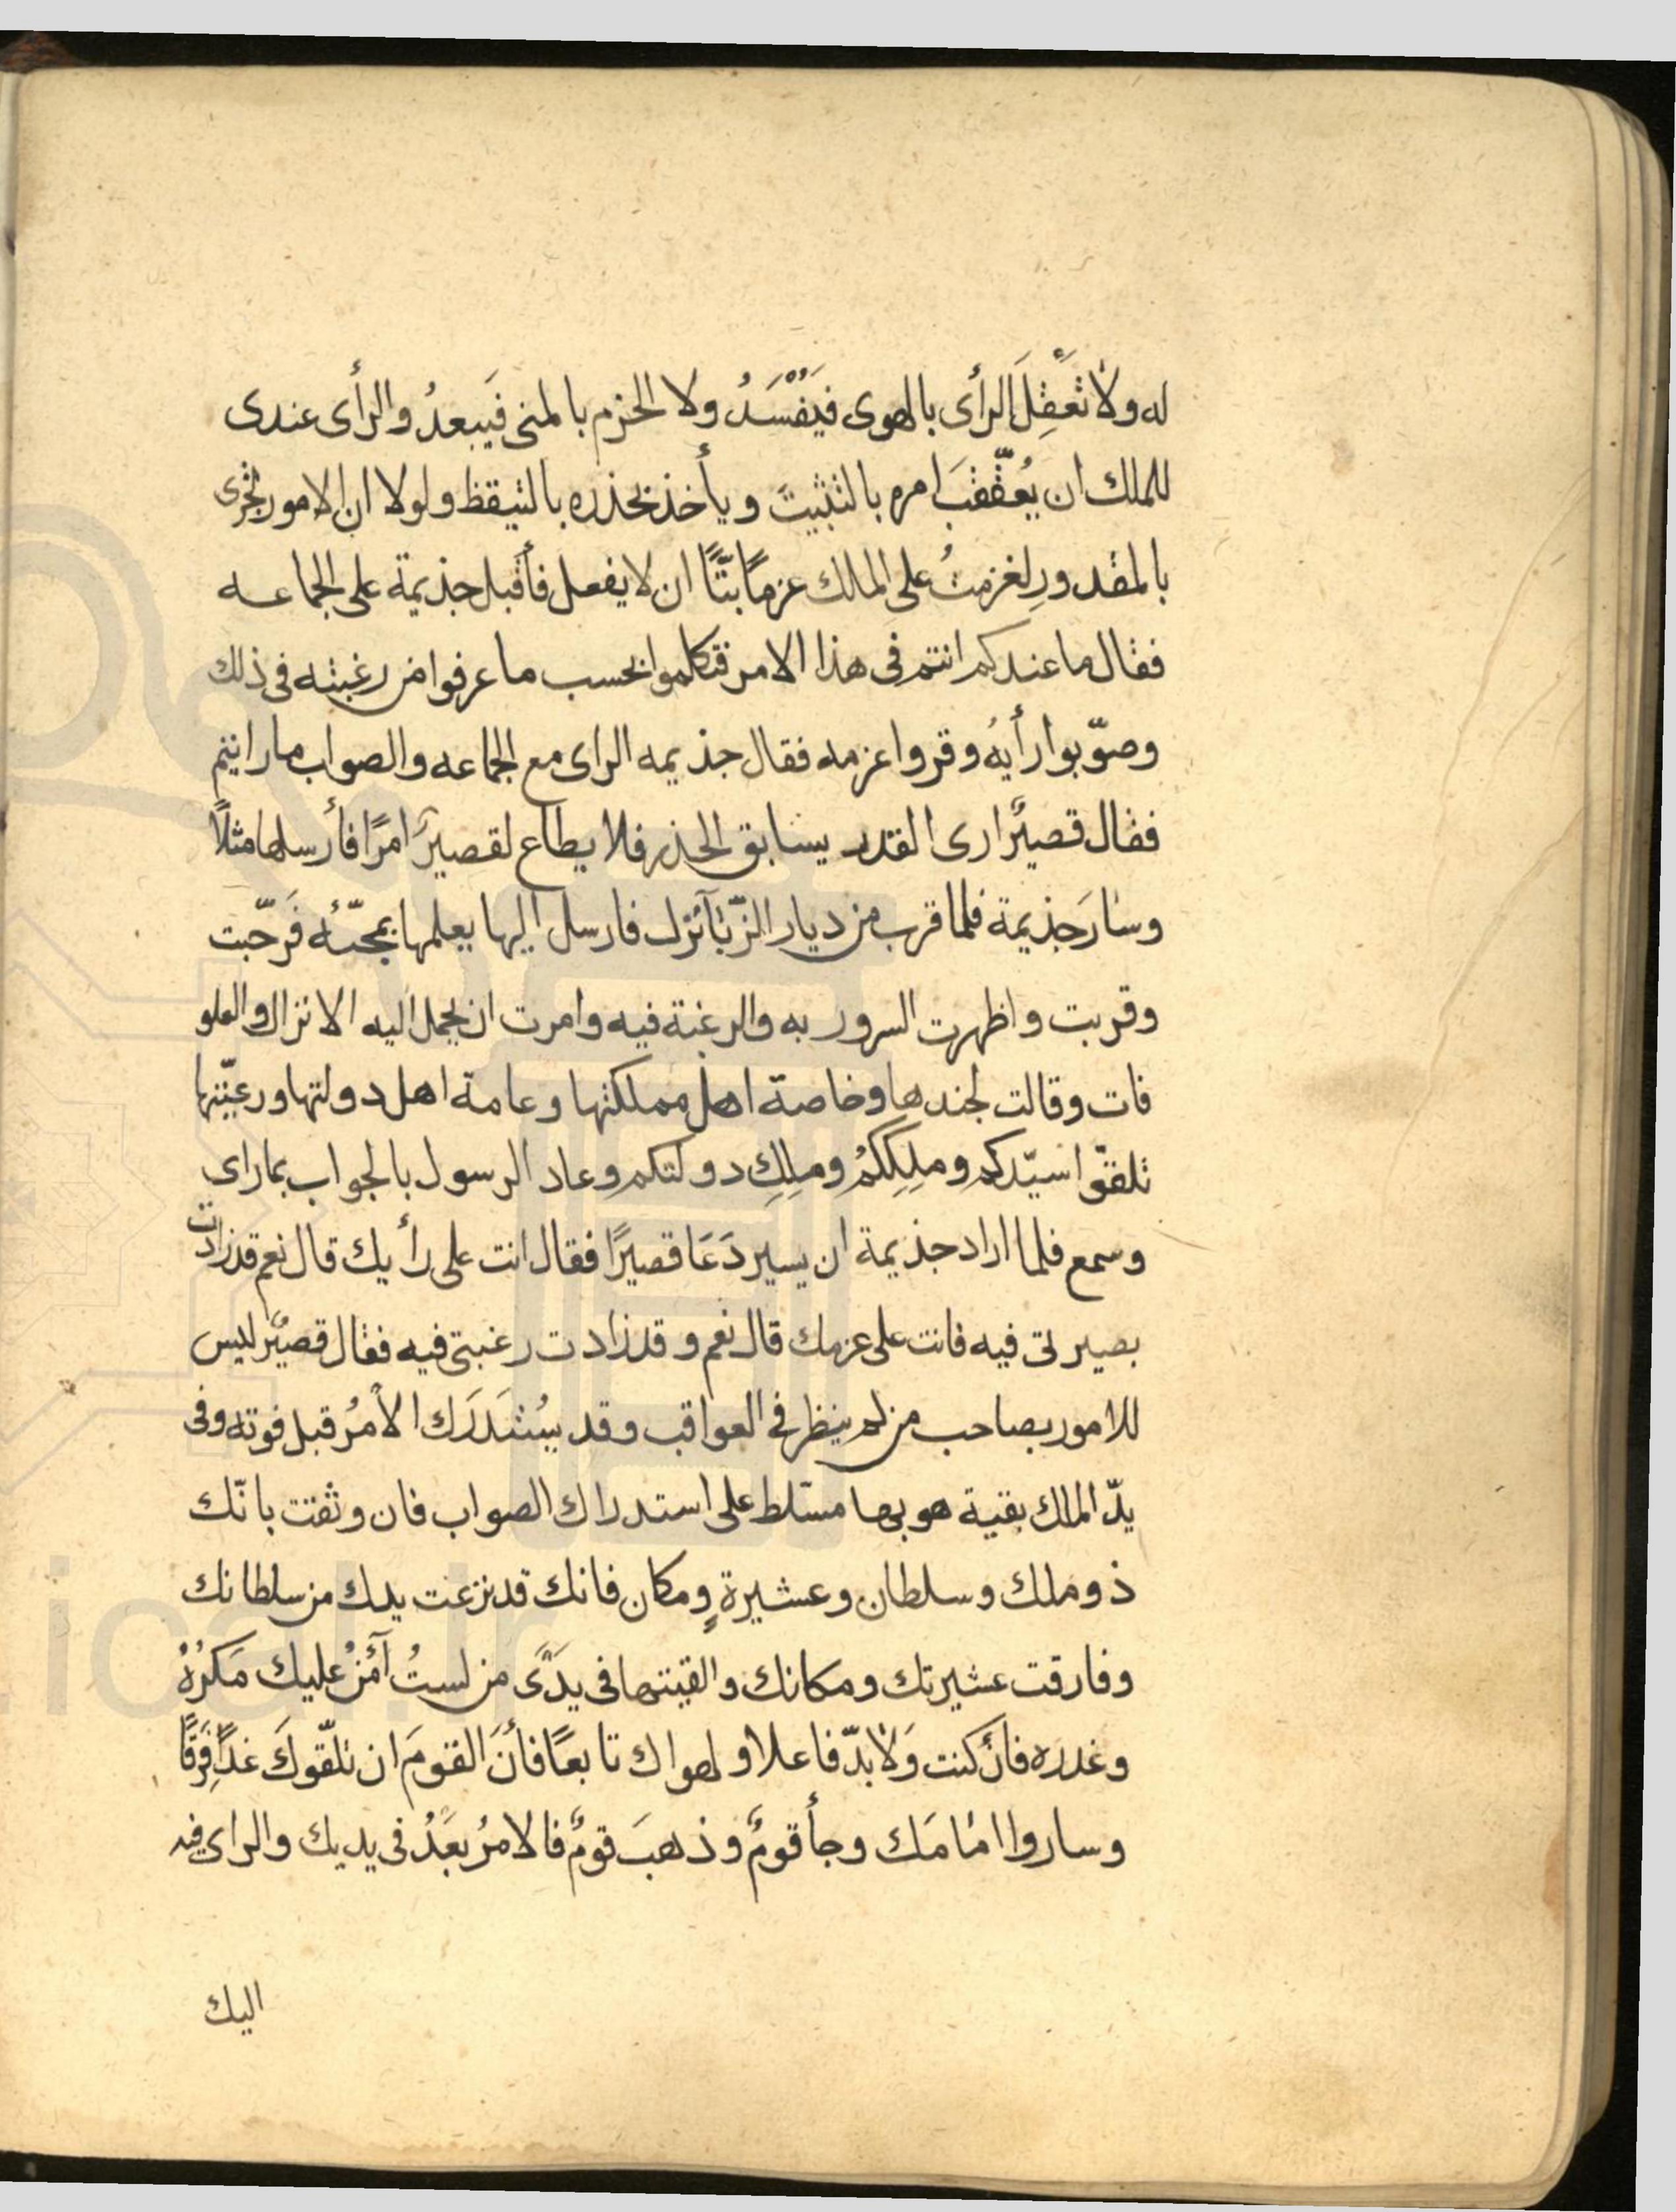 له ولا تَعقِلَ الرأى بالهوى فيَفْسَدُ ولا الحزم بالمنى فَيبعدُ والرأى عندى
للملك ان يُعقّقبَ امره بالتثبيت ويأخذ بحذره بالتيقظ ولولا ان الامور تجرى
بالمقدورِ لعزمتُ على الملك عزمًا بتًّا ان لا يفعل فأقبل جذيمة على الجماعه
فقال ما عندكم انتم فى هذا الامر فتكلموا بحسب ما عرفوا من رغبته فى ذلك
وصوّبوا رأيهُ وقروا عزمه فقال جذيمه الراى مع الجماعه والصواب ما رايتم
فقال قصيرٌ ارى القدر يسابق الحذر فلا يطاع لقصيرَ امرًا فأرسلها مثلاً
وسارَ جذيمة فلما قرب من ديار الزّبآ نزل فارسل اليها يعلمها بمجيّئه فَرحّبت
وقربت واظهرت السرور به والرغبة فيه وامرت ان يحمل اليه الانزال والعلو
فات وقالت لجندها وخاصة اهل مملكتها وعامة اهل دولتها ورعيّتها
تلقوّا سيّدكم وملِكِكمُ وملِكِ دولتكم وعاد الرسول بالجواب بما راى
وسمع فلما اراد جذيمة ان يسير دَعَا قصيرًا فقال انت على رأيك قال نعم قد زادت
بصيرتى فيه فانت على عزمك قال نعم وقد زادت رغبتى فيه فقال قصيرٌ ليس
للامور بصاحب من لم ينظر فى العواقب وقد يسُتَدرَك الأمرُ قبل فوته وفى
يدّ الملك بقية هو بها مسّلط على استدراك الصواب فان وثقت بانّك
ذو ملك وسلطان وعشيرةٍ ومكان فانك قد نزعت يدك من سلطانك
وفارقت عشيرتك ومكانك والقيتها فى يدَىّ من لستُ آمَنُ عليك مَكرُهُ
وغدره فأن كنت وَلابدّ فاعلا ولهواك تابعًا فأنَ القومَ ان تلقّوكَ غدًا فِرَقًا
وساروا امامَك وجأ قومٌ وذهبَ قومٌ فالامرُ بعَدُ فى يديك والراى فيه
اليك